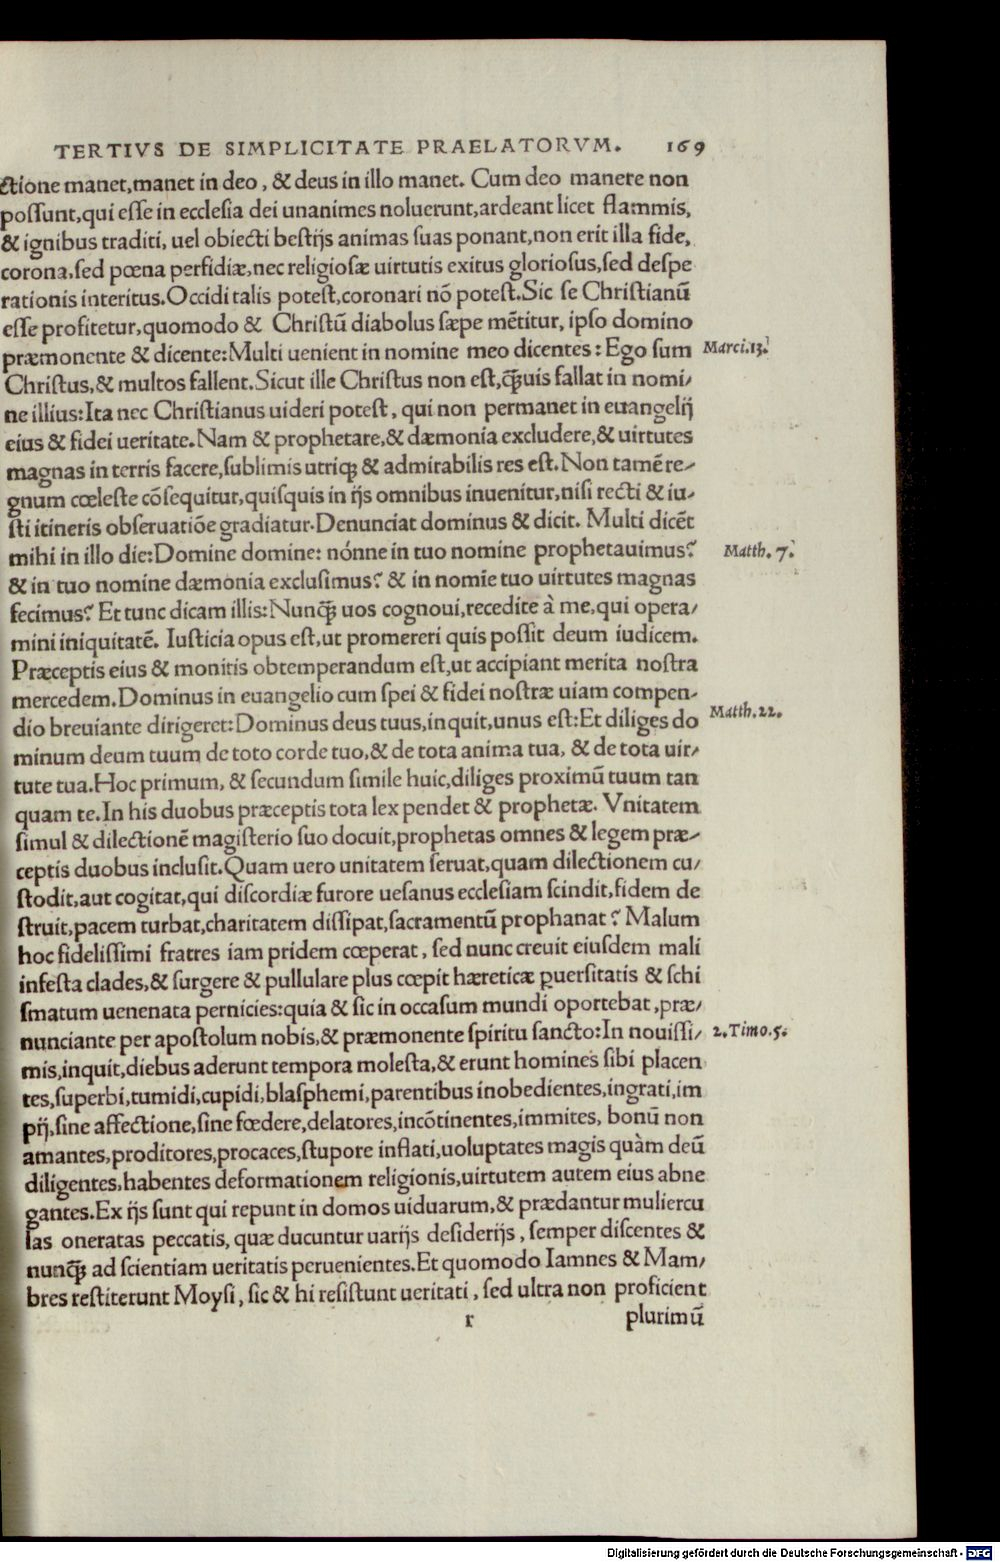 TERTIVS DE SIMPLICITATE PRAELATORVM. 169
ctione manet,manet in deo, & deus in illo manet. Cum deo manere non
possunt,qui esse in ecclesia dei unanimes noluerunt,ardeant licet flammis,
& ignibus traditi, uel obiecti bestijs animas suas ponant,non erit illa fide,
corona,sed pœna perfidiæ,nec religiosæ uirtutis exitus gloriosus,sed despe
rationis interitus.Occidi talis potest,coronari nō potest.Sic se Christianū
esse profitetur,quomodo & Christū diabolus sæpe mētitur, ipso domino
præmonente & dicente:Multi uenient in nomine meo dicentes: Ego sum Marci.13.
Christus,& multos fallent.Sicut ille Christus non est,q̄uis fallat in nomi/
ne illius:Ita nec Christianus uideri potest, qui non permanet in euangelij
eius & fidei ueritate.Nam & prophetare,& dæmonia excludere,& uirtutes
magnas in terris facere,sublimis utriq; & admirabilis res est.Non tamē re/
gnum cœleste cōsequitur,quisquis in ijs omnibus inuenitur,nisi recti & iu/
sti itineris obseruatiōe gradiatur.Denunciat dominus & dicit. Multi dicēt
mihi in illo die:Domine domine: nónne in tuo nomine prophetauimus? Matth. 7.
& in tuo nomine dæmonia exclusimus? & in nomīe tuo uirtutes magnas
fecimus? Et tunc dicam illis:Nunq̄ uos cognoui,recedite à me,qui opera/
mini iniquitatē. Iusticia opus est,ut promereri quis possit deum iudicem.
Præceptis eius & monitis obtemperandum est,ut accipiant merita nostra
mercedem.Dominus in euangelio cum spei & fidei nostræ uiam compen/
dio breuiante dirigeret:Dominus deus tuus,inquit,unus est:Et diliges do Matth.22.
minum deum tuum de toto corde tuo,& de tota anima tua, & de tota uir/
tute tua.Hoc primum, & secundum simile huic,diliges proximū tuum tan
quam te.In his duobus præceptis tota lex pendet & prophetæ. Vnitatem
simul & dilectionē magisterio suo docuit,prophetas omnes & legem præ/
ceptis duobus inclusit.Quam uero unitatem seruat,quam dilectionem cu/
stodit,aut cogitat,qui discordiæ furore uesanus ecclesiam scindit,fidem de
struit,pacem turbat,charitatem dissipat,sacramentū prophanat? Malum
hoc fidelissimi fratres iam pridem cœperat, sed nunc creuit eiusdem mali
infesta clades,& surgere & pullulare plus cœpit hæreticæ ꝑuersitatis & schi
smatum uenenata pernicies:quia & sic in occasum mundi oportebat,præ/
nunciante per apostolum nobis,& præmonente spiritu sancto:In nouissi/ 2.Timo.5.
mis,inquit,diebus aderunt tempora molesta,& erunt homines sibi placen
tes,superbi,tumidi,cupidi,blasphemi,parentibus inobedientes,ingrati,im
pij,sine affectione,sine fœdere,delatores,incōtinentes,immites, bonū non
amantes,proditores,procaces,stupore inflati,uoluptates magis quàm deū
diligentes,habentes deformationem religionis,uirtutem autem eius abne
gantes.Ex ijs sunt qui repunt in domos uiduarum,& prædantur muliercu
las oneratas peccatis, quæ ducuntur uarijs desiderijs, semper discentes &
nunq̄ ad scientiam ueritatis peruenientes.Et quomodo Iamnes & Mam/
bres restiterunt Moysi, sic & hi resistunt ueritati, sed ultra non proficient
r plurimū
Digitalisierung gefördert durch die Deutsche Forschungsgemeinschaft - DFG